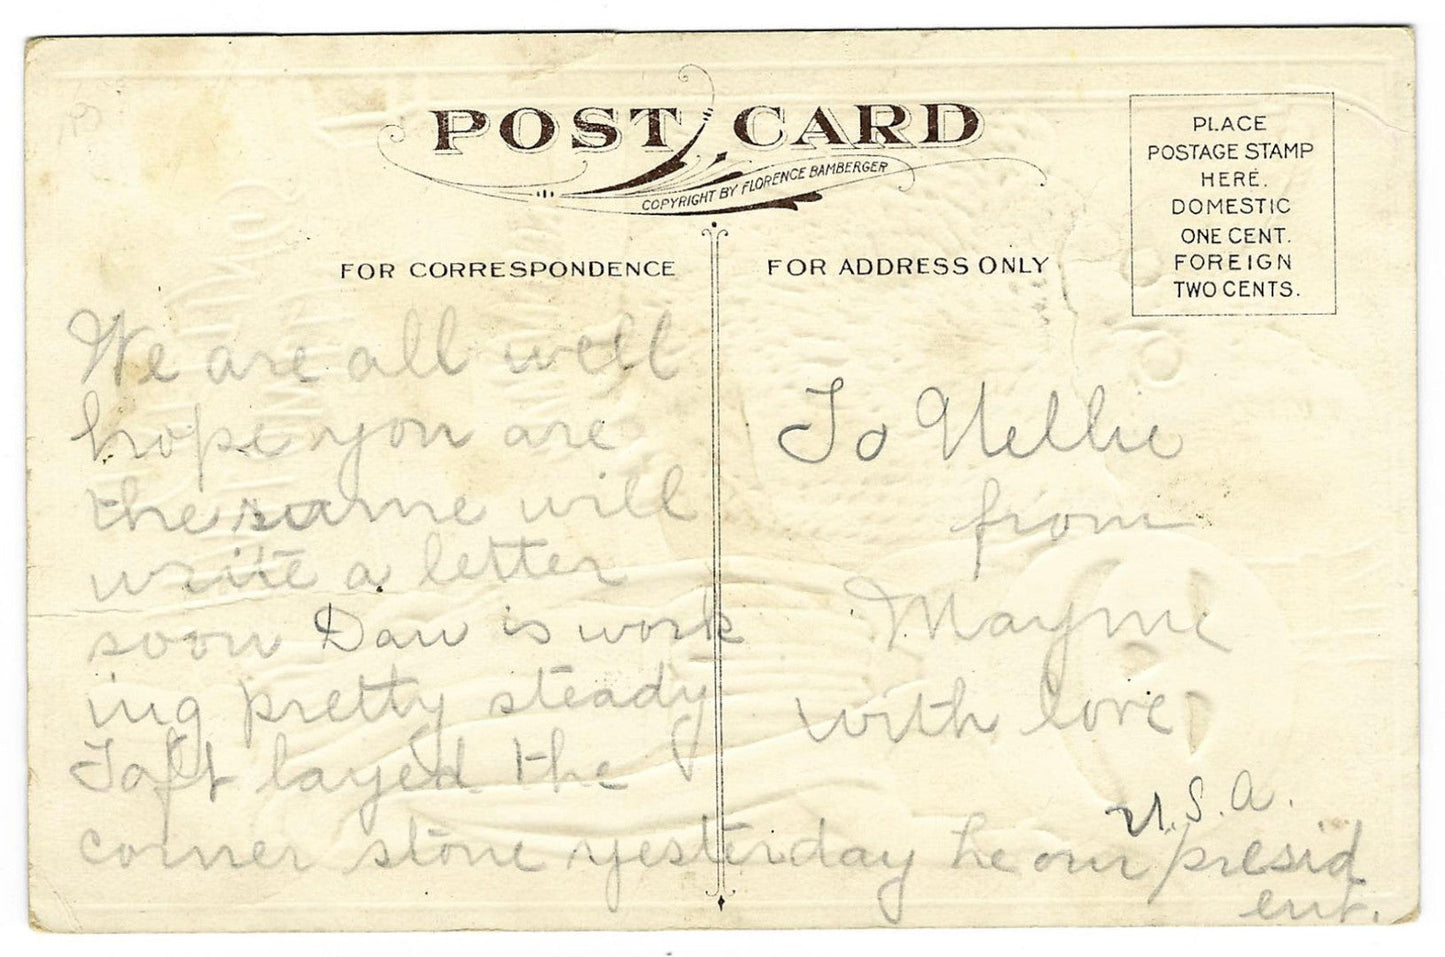 POST CARD
COPYRIGHT BY FLORENCE BAMBERGER
PLACE
POSTAGE STAMP
HERE.
DOMESTIC
ONE CENT.
FOREIGN
TWO CENTS.
FOR CORRESPONDENCE
FOR ADDRESS ONLY
We are all well
hope you are
the same will
write a letter
soon Dan is work
ing pretty steady
Taft layed the
corner stone yesterday he our presid
ent.
To Nellie
from
Mayme
with love
U.S.A.